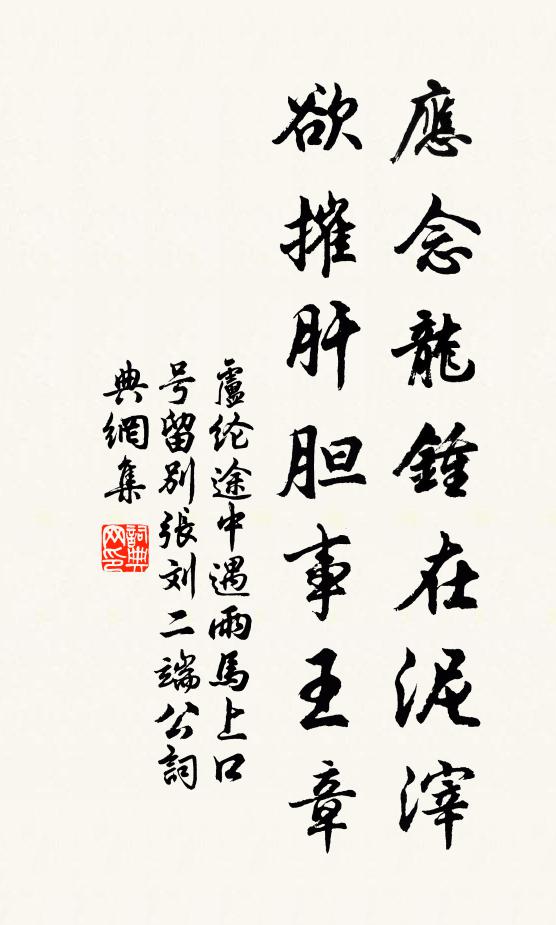 應念龍鍾在泥滓
欲摧肝胆事王章
盧纶途中遇雨馬上口
号留別張刘二端公詞
典網集
詞典网印